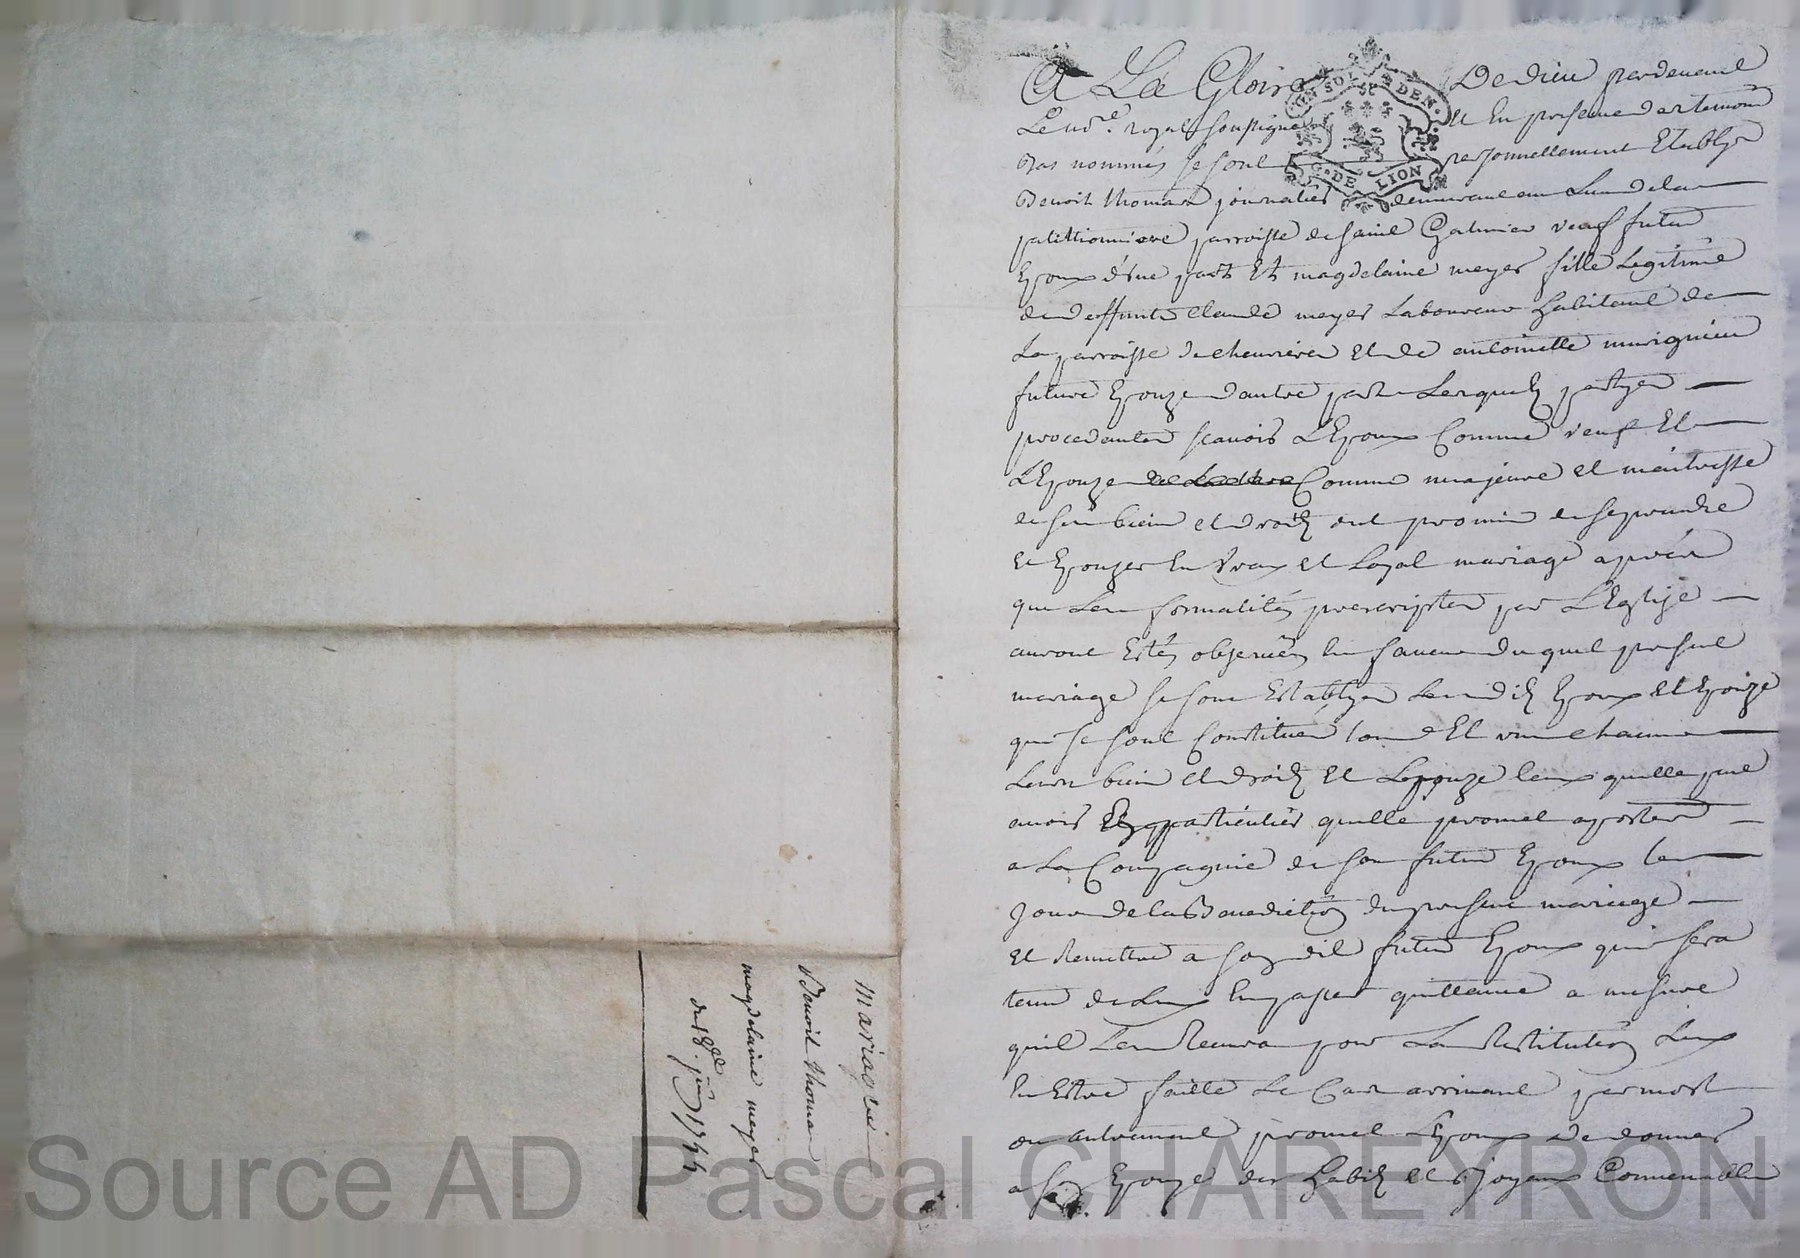 mariage
Benoit thomas
magdelaine meyer
du 18.me jūin 1744
A La Gloire De dieu pardevant
Le no.re royal soussigné Et En presence des temoins
Bas nommés se sont personnellement Etablys
Benoit thomas journalier demeurant au Lieu de la
paroisse de saint Galmier veuf futur
Epoux d'une part Et magdelaine meyer fille Legitime
de deffunt Claude meyer Laboureur habitant de
La parroisse de chevrieres et de antoinette
future Epouze d'autre part Lesquels partyes
procedantes scavoir L'Epoux Comme veuf Et
L'Epouze Comme majeure et maitresse
de ses biens et droits ont promis de se prendre
et Epouzer En vray et Loyal mariage apres
que Les formalités prescriptes par L'Eglise
auront Estés observées En faveur duquel present
mariage se sont Establyes Lesdits Epoux et Epouze
qui se sont Constitués tous Et un chacuns
Leurs biens et droits et Lepouze ceux quelle peut
avoir En particulier quelle promet aporter
a La Compagnie de son futur Epoux le
Jour de la Benediction du present mariage
et Remettre a son dit futur Epoux qui sera
tenu de Luy En passer quittance a mesure
quil Les Recevra pour La Restitution Luy
En Estre faitte Le Cas arrivant par mort
ou autrement promet L'Epoux de donner
a son Epouze des habits et joyaux Convenables
UN SOL DEN.
G. DE LION
Source AD Pascal CHAREYRON